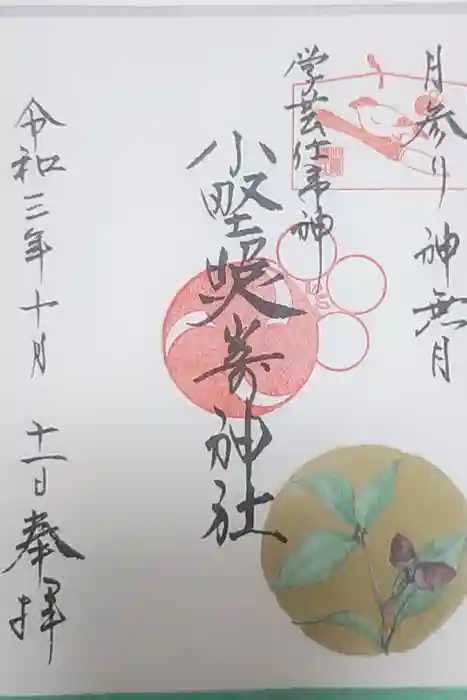 月参り 神無月
学芸仕事神
小野照嵜神社
令和三年十月 十一日 奉拝